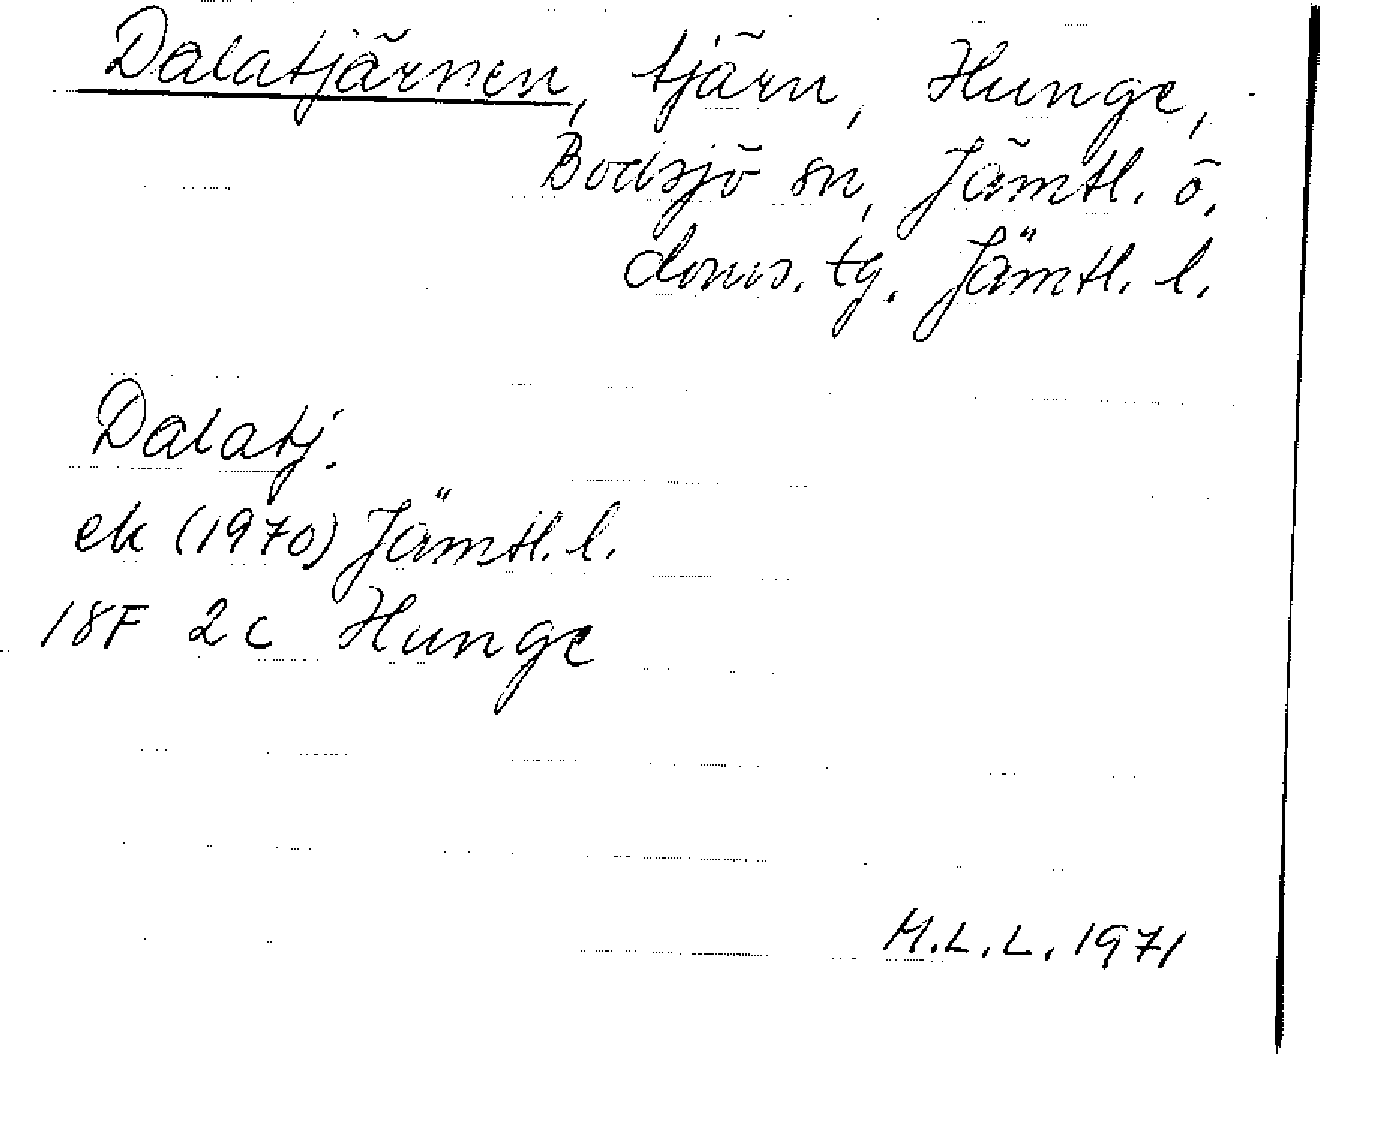 Dalatjärnen, tjärn, Hunge,
Bodsjö sn, Jämtl. ö.
doms. tg. Jämtl. l.
Dalatj.
ek (1970) Jämtl. l.
18F 2c Hunge
M.L.L. 1971